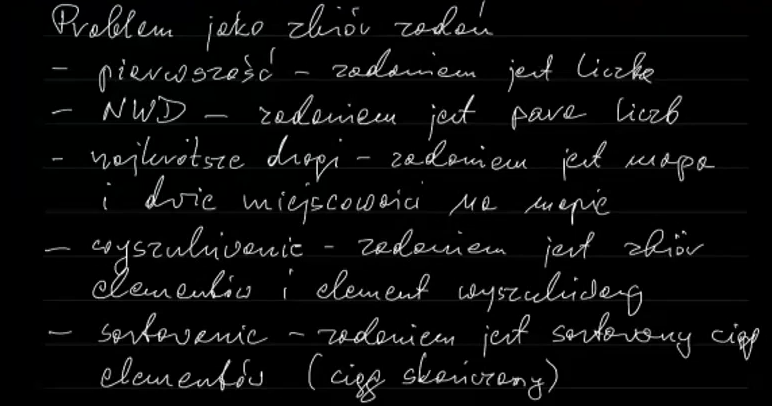 Problem jako zbiór zadań
- pierwszość - zadaniem jest liczba
- NWD - zadaniem jest para liczb
- najkrótsze drogi - zadaniem jest mapa
i dwie miejscowości na mapie
- wyszukiwanie - zadaniem jest zbiór
elementów i element wyszukiwany
- sortowanie - zadaniem jest sortowany ciąg
elementów (ciąg skończony)